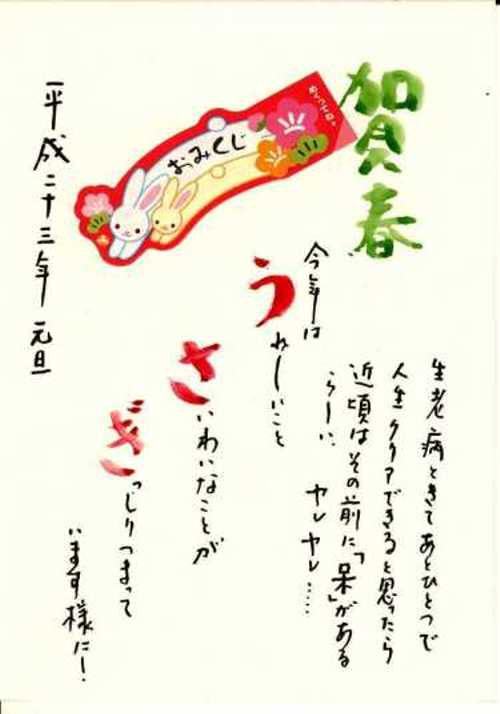 賀春
生老病ときてあとひとつで
人生クリアできると思ったら
近頃はその前に「呆」がある
らしい、ヤレヤレ……
今年は
うれしいこと
さいわいなことが
ぎっしりつまって
います様に!
おみくじ
平成二十三年 元旦